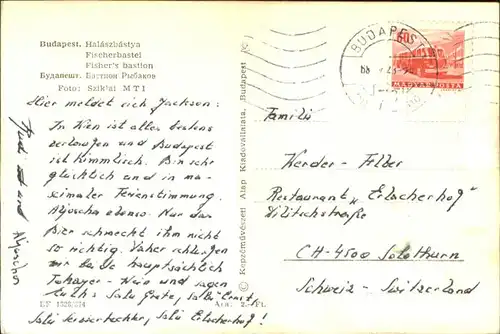 Budapest. Halászbástya
Fischerbastei
Fisher's bastion
Будапешт. Бастион Рыбаков
Foto: Sziklai MTI
Hier meldet sich Jackson:
In Wien ist alles bestens
verlaufen und Budapest
ist himmlisch. Bin sehr
glücklich und in ma-
ximaler Ferienstimmung.
Aljoscha ebenso. Nur das
Bier schmeckt ihm nicht
so richtig. Daher schlürfen
wir beide hauptsächlich
Tokayer-Wein und sagen
Euch: Salü Grete, Salü Ernst,
Salü Serviertochter, Salü Eilscherhof!
und Aljoscha
EF 1528/674
Ára: 2.- Ft.
© Képzőművészeti Alap Kiadóvállalata, Budapest
BUDAPEST
MAGYAR POSTA
Familie
Herder-Felber
Restaurant "Eilscherhof"
CH-4500 Solothurn
Schweiz - Switzerland